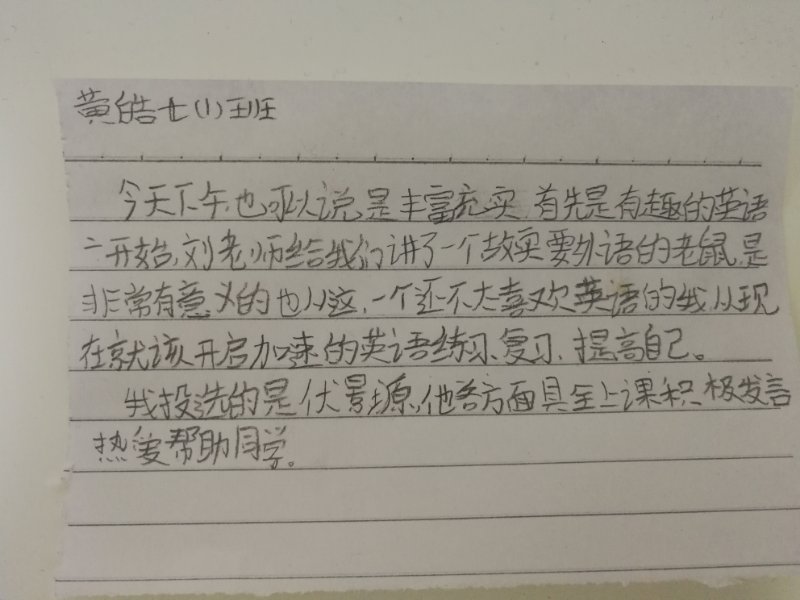 黄皓七(1)班
今天下午,也可以说是丰富充实,首先是有趣的英语
一开始,刘老师给我们讲了一个故实要外语的老鼠,是
非常有意义的也从这,一个还不太喜欢英语的我,从现
在就该开启加速的英语练习、复习、提高自己。
我投选的是伏景源,他各方面具全上课积极发言
热爱帮助同学。